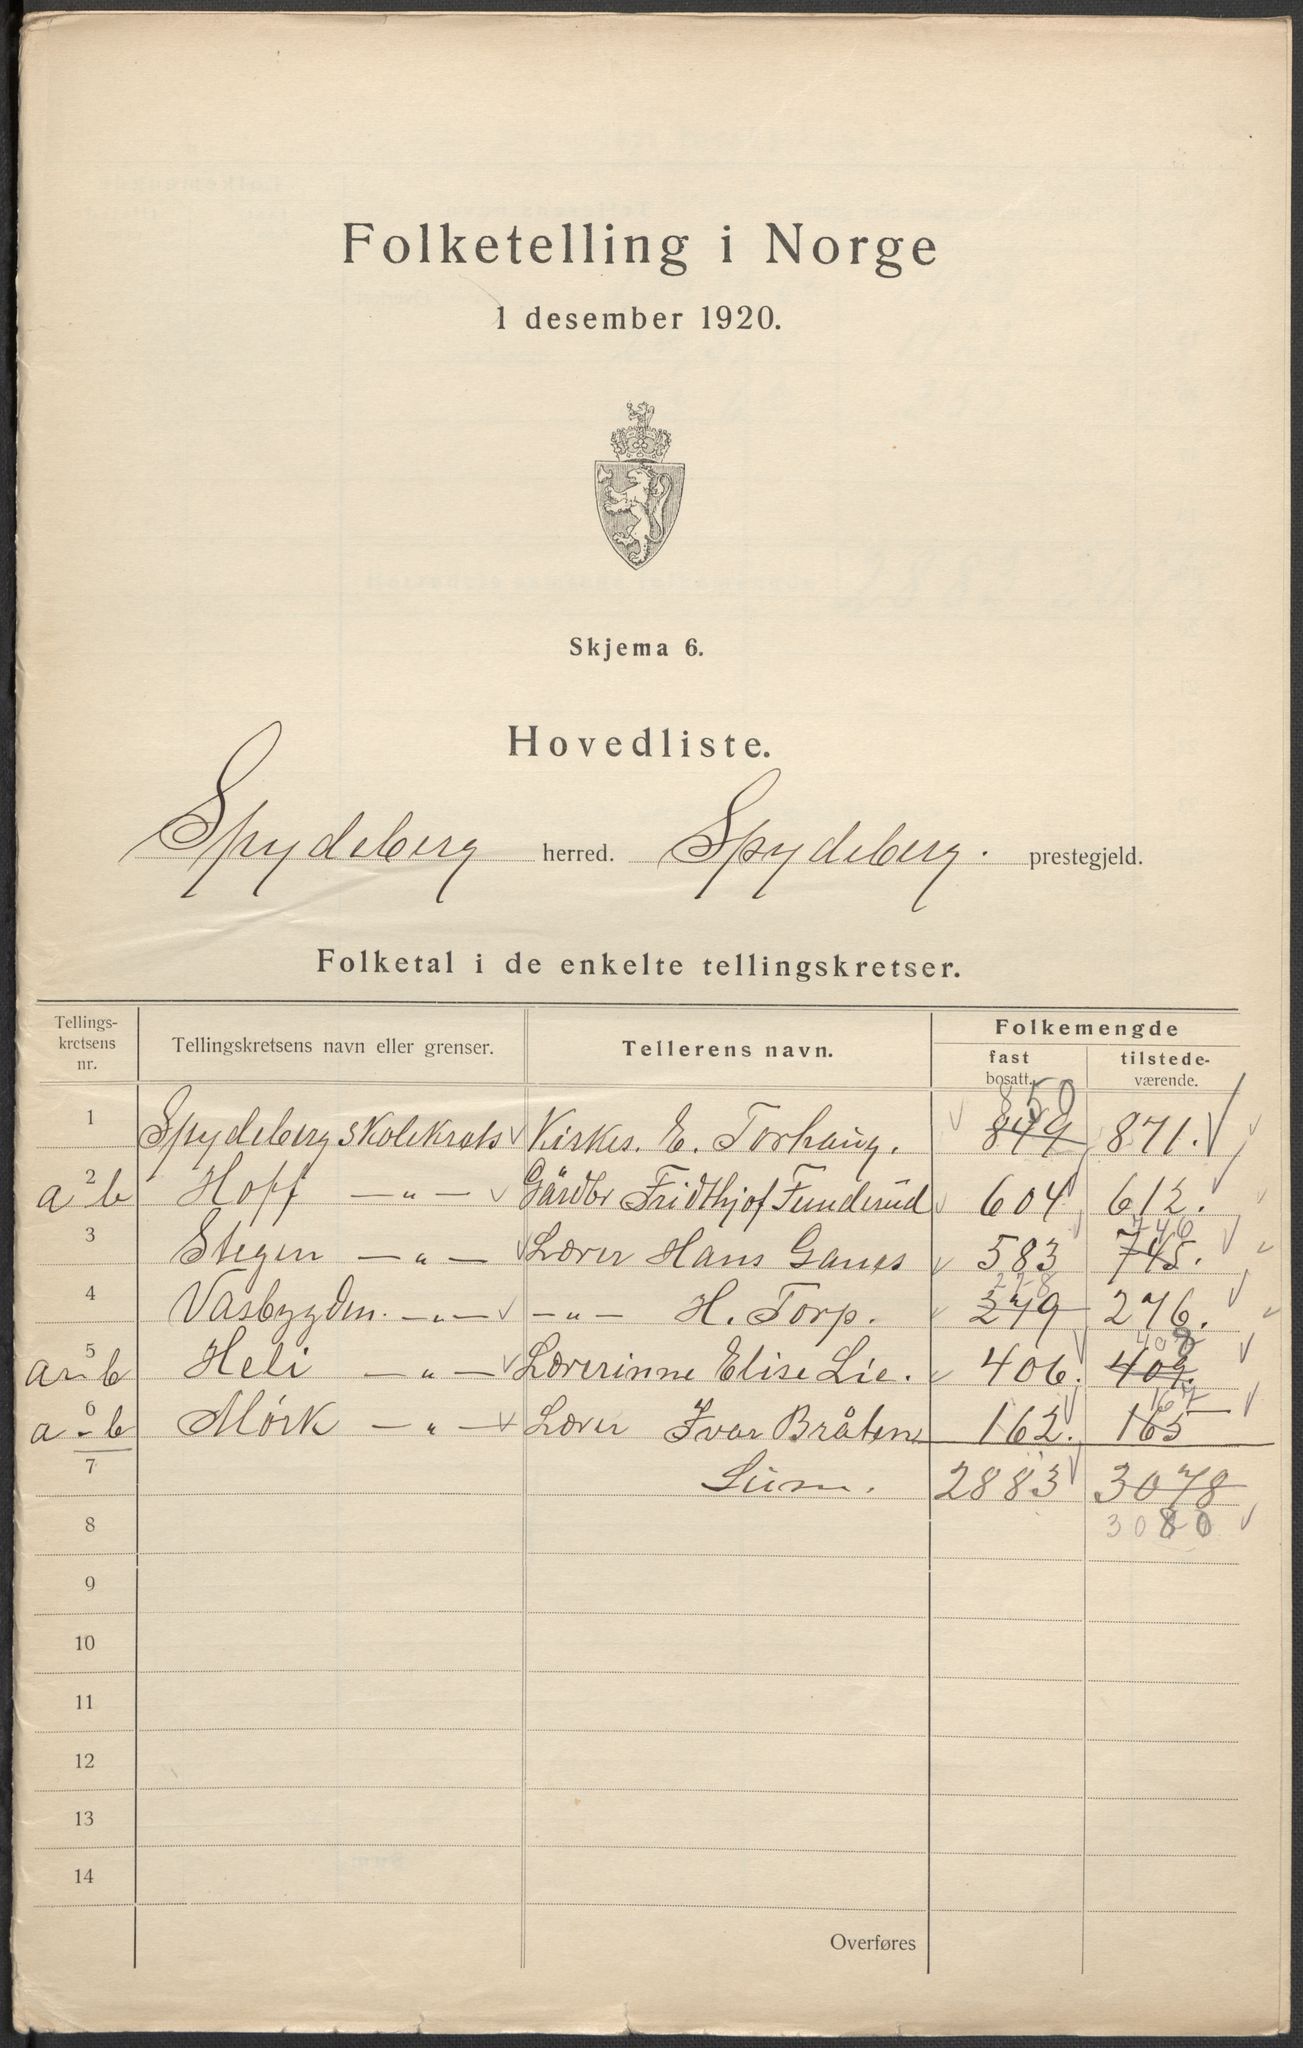 Folketelling i Norge
1 desember 1920.
Skjema 6.
Hovedliste.
Spydeberg herred. Spydeberg. prestegjeld.
Folketal i de enkelte tellingskretser.
Tellings-
kretsens
nr.
Tellingskretsens navn eller grenser.
Tellerens navn.
Folkemengde
fast
bosatt.
tilstede-
værende.
850
1 Spydeberg skolekrets Kirkes. E. Torhaug. 849 871.
a 2 b Hoff — „ — Gårdbr Fridthjof Funderud 604 612.
746
3 Stegen — „ — Lærer Hans Ganes 583 745.
278
4 Vasbygden. — „ — — „ — H. Torp. 279 276.
408
a 5 b Heli — „ — Lærerinne Elise Lie. 406. 409.
167
a 6 b Mørk — „ — Lærer Ivar Bråten 162. 165
7 Sum. 2883 3078
8 3080
9
10
11
12
13
14
Overføres